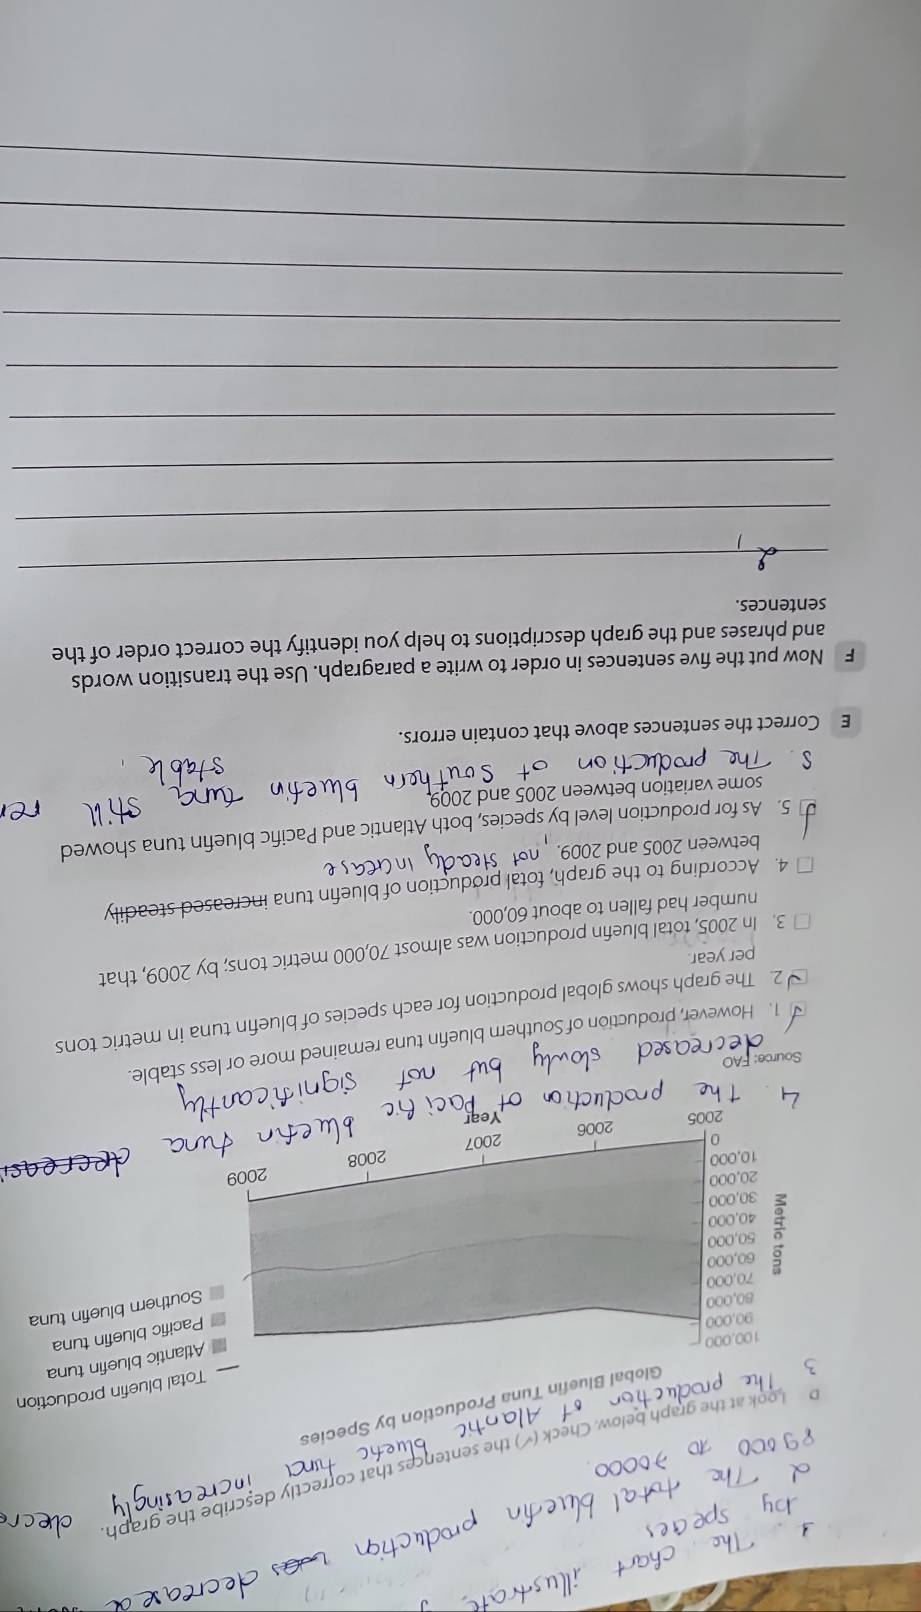 1. The chart illustrate
by species
2 The total bluefin production was decrease
89000 to 70000.
D Look at the graph below. Check (✓) the sentences that correctly describe the graph.
3 The production of Alantic bluefic tuna increasingly decre
Global Bluefin Tuna Production by Species
100,000
90,000
80,000
70,000
60,000
50,000
40,000
30,000
20,000
10,000
0
Metric tons
2005
2006
2007
2008
2009
Year
Total bluefin production
Atlantic bluefin tuna
Pacific bluefin tuna
Southern bluefin tuna
4. The production of Pacific bluefin tuna decreas
decreased slowly but not significantly
Source: FAO
1. However, production of Southern bluefin tuna remained more or less stable.
2. The graph shows global production for each species of bluefin tuna in metric tons
per year.
3. In 2005, total bluefin production was almost 70,000 metric tons; by 2009, that
number had fallen to about 60,000.
4. According to the graph, total production of bluefin tuna increased steadily
between 2005 and 2009. not steady increase
5. As for production level by species, both Atlantic and Pacific bluefin tuna showed
some variation between 2005 and 2009.
5. The production of Southern bluefin tuna still rem
stable.
E Correct the sentences above that contain errors.
F Now put the five sentences in order to write a paragraph. Use the transition words
and phrases and the graph descriptions to help you identify the correct order of the
sentences.
2,